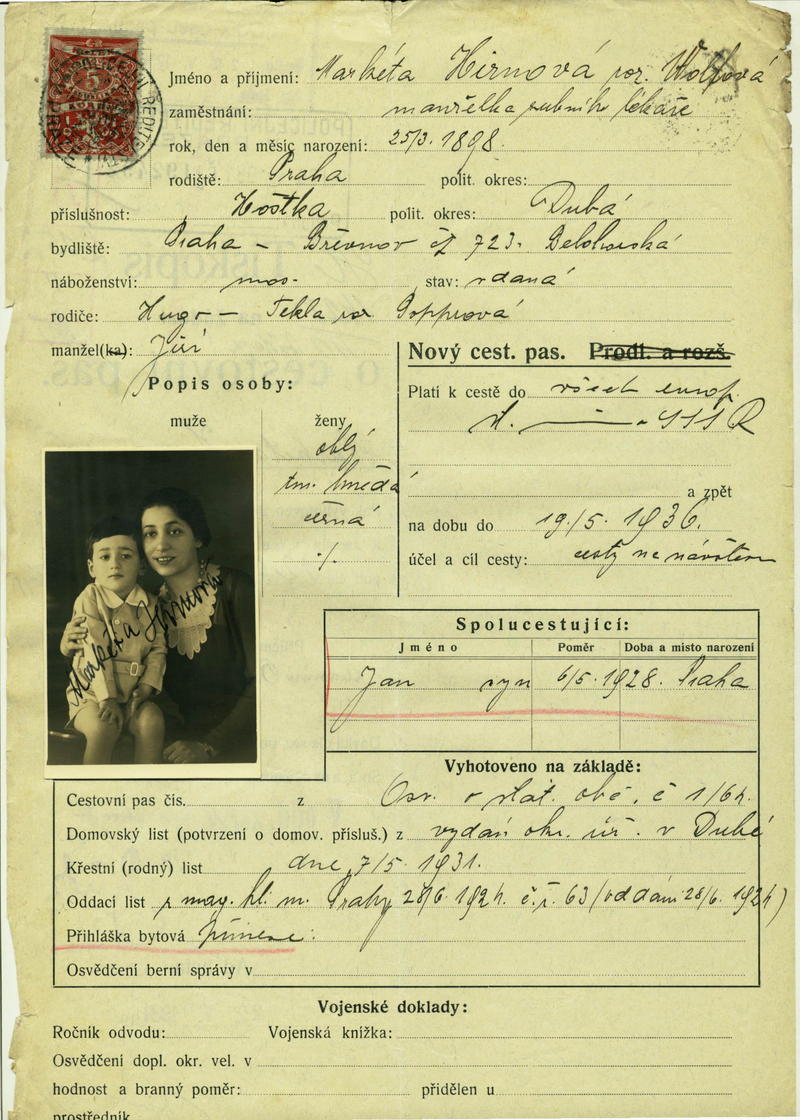 Jméno a příjmení: Markéta Hirnová roz. Wolfová
zaměstnání: manželka zubního lékaře
rok, den a měsíc narození: 25/3. 1898.
rodiště: Praha polit. okres:
příslušnost: Hoštka polit. okres: Dubá
bydliště: Praha – Břevnov čp 723. Bělohorská
náboženství: mos. stav: vdaná
rodiče: Hugo – Tekla roz.
manžel(ka): Jiří
Nový cest. pas. Prodl. a rozš.
Popis osoby:
Platí k cestě do všech europ.
muže ženy
st. – SSSR
oblý
tm. hnědá
a zpět
černá
na dobu do 19/5. 1936.
·/.
účel a cíl cesty: cesty na návštěvu
Markéta Hirnová
Spolucestující:
Jméno Poměr Doba a místo narození
Jan syn 6/5. 1928. Praha
Vyhotoveno na základě:
Cestovní pas čís. z Osv. o stát. obč. č 1/64.
Domovský list (potvrzení o domov. přísluš.) z vydán okr. úř. v Dubé
Křestní (rodný) list dne 7/5. 1931.
Oddací list z mag. hl. m. Prahy 28/6. 1924. č.ř. 63 (oddáni 28/6. 1924)
Přihláška bytová přinese.
Osvědčení berní správy v
Vojenské doklady:
Ročník odvodu: Vojenská knížka:
Osvědčení dopl. okr. vel. v
hodnost a branný poměr: přidělen u
prostředník